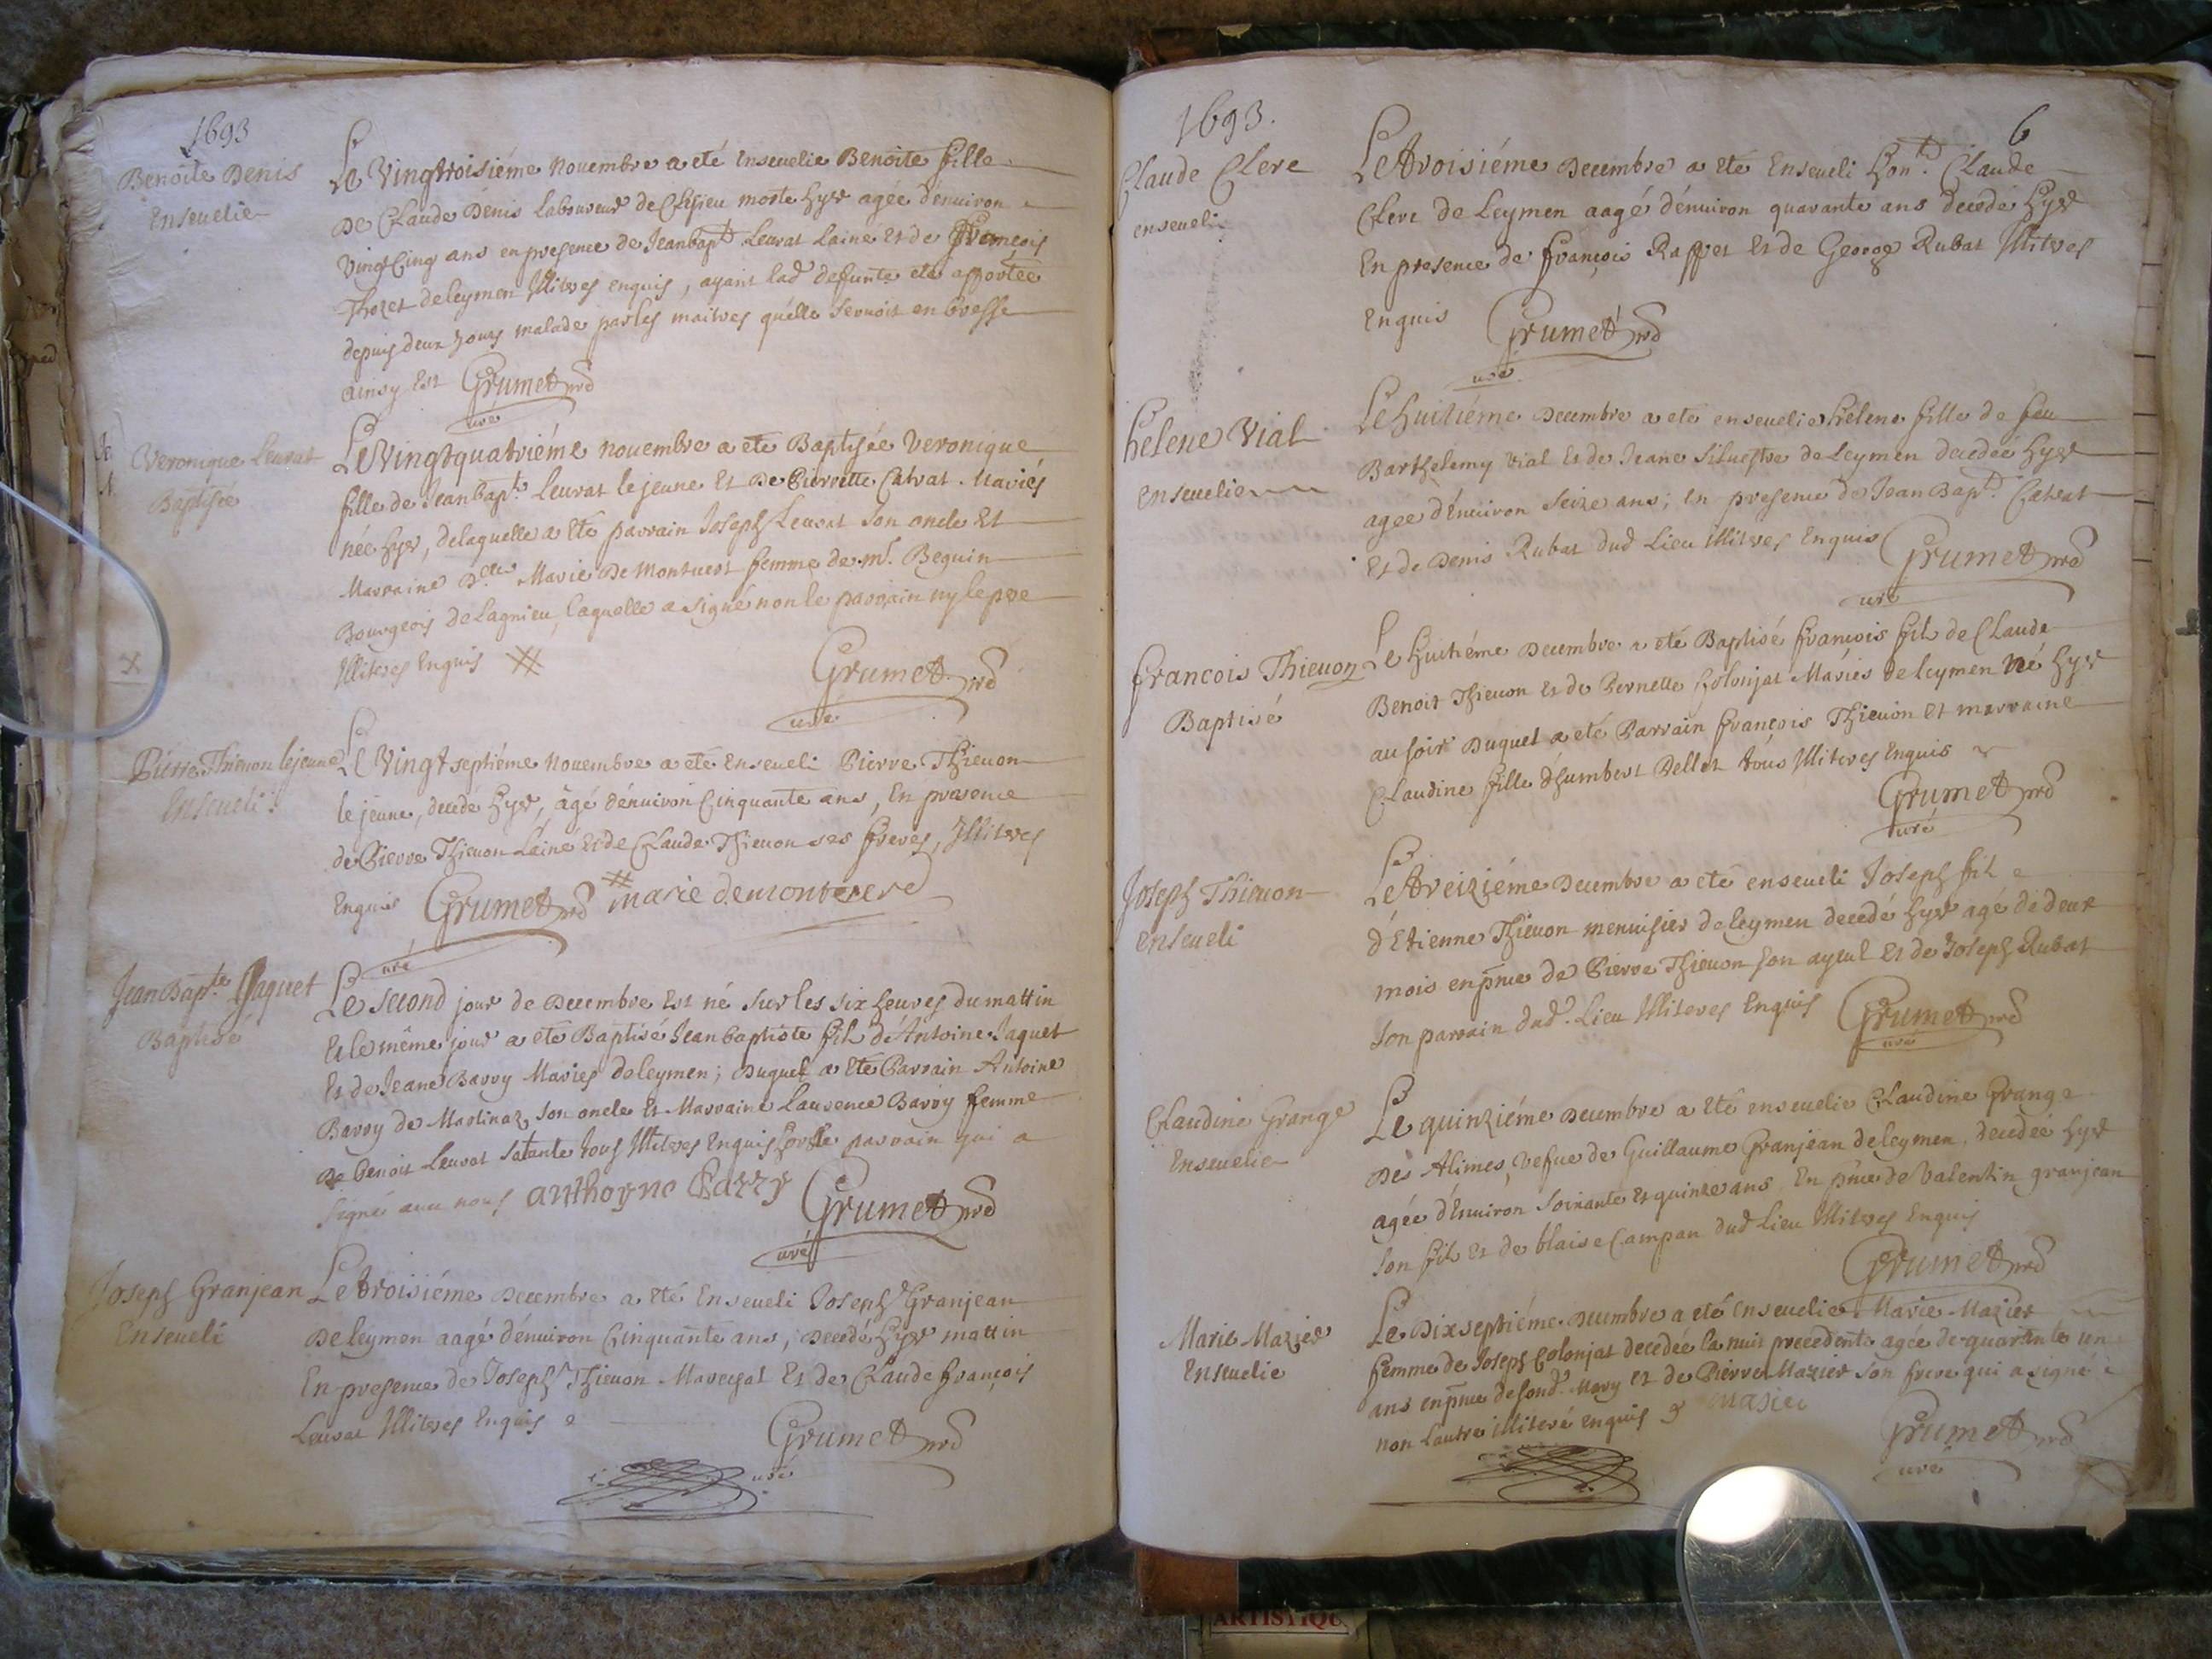 1693
Benoite Denis
Enseuelie
Le Vingtroisiéme Nouembre a eté Enseuelie Benoite fille
De Claude Denis laboureur de Chesieu morte hyer agée d'enuiron
Vingt Cinq ans en presence de Jean bapt. Leurat Lainé Et de François
Thozet de leymen Illitres enquis, ayant lad. defunte eté apportée
depuis deux jours malade par les maitres qu'elle seruoit en bresse
ainsy Est Grumet curé
Veronique Leurat
Baptisée
Le Vingt quatriéme nouembre a eté Baptisée Veronique
fille de Jean bapt. Leurat le jeune Et De Pierrette Catrat. Mariés
née hyer, de laquelle a Eté parrain Joseph Leurat son oncle Et
Marraine Delle Marie De Montuert femme de mr. Beguin
Bourgeois de Lagnieu, laquelle a signé non le parrain ny le pere
Illitres Enquis #
Grumet curé
Pierre Thieuon le jeune
Enseueli
Le Vingt septiéme Nouembre a eté Enseueli Pierre Thieuon
le jeune, decedé hyer, âgé d'enuiron Cinquante ans, En presence
de Pierre Thieuon Lainé et de Claude Thieuon ses freres, Illitres
Enquis Grumet curé # marie demontuert
Jean Bapt.te Jaquet
Baptisé
Le second jour de Decembre Est né sur les six heures du mattin
Et le même jour a eté Baptisé Jean baptiste fils d'Antoine Jaquet
Et de Jeane Barry Mariés de leymen; Duquel a Eté Parrain Antoine
Barry de Martinaz son oncle Et Marraine Laurence Barry femme
De Benoit Leurat sa tante tous Illitres Enquis hors le parrain qui a
signé auec nous anthoyne Barry Grumet curé
Joseph Granjean
Enseueli
Le troisiéme Decembre a eté Enseueli Joseph Granjean
De leymen aagé d'enuiron Cinquante ans, Decedé hyer mattin
En presence de Joseph Thieuon Marechal Et de Claude François
Leurat Illitres Enquis
Grumet curé
1693.
6
Claude Clere
enseueli
Le troisiéme Decembre a Eté Enseueli hon. Claude
Clere de Leymen aagé d'enuiron quarante ans decedé hyer
En presence de François Raffet Et de George Rubat Illitres
Enquis Grumet curé
helene Vial
enseuelie
Le huitiéme Decembre a eté enseuelie helene fille de feu
Barthelemy Vial Et de Jeane Siluestre de Leymen decedée hyer
agée d'enuiron seize ans; en presence de Jean Bapt. Catrat
Et de Denis Rubat dud. Lieu Illitres Enquis Grumet curé
francois Thieuon
Baptisé
Le huitiéme Decembre a eté Baptisé François fils de Claude
Benoit Thieuon Et de Pernette Colonjat Mariés de leymen Né hyer
au soir Duquel a eté Parrain François Thieuon et marraine
Claudine fille d'humbert Pellet tous Illitres Enquis
Grumet curé
Joseph Thieuon
enseueli
Le treiziéme Decembre a eté enseueli Joseph fils
d'Etienne Thieuon menuisier de leymen decedé hyer agé de deux
mois en pnce de Pierre Thieuon son ayeul Et de Joseph Rubat
son parrain dud. Lieu Illitres Enquis Grumet curé
Claudine Grange
Enseuelie
Le quinziéme Decembre a Eté enseuelie Claudine Grange
Dès Alimes, Vefue de Guillaume Granjean de leymen, decedée hyer
agée d'Enuiron soixante et quinze ans En pnce de Valentin granjean
son fils Et de blaise Campan dud. Lieu Illitres Enquis
Grumet curé
Marie Mazier
Enseuelie
Le Dixseptiéme Decembre a eté Enseuelie Marie Mazier
femme de Joseph Colonjat decedée la nuit precedente agée de quarante un
ans en pnce de sond. Mary et de Pierre Mazier son frere qui a signé
non l'autre illiteré Enquis masier
Grumet curé
ARTISTIQU